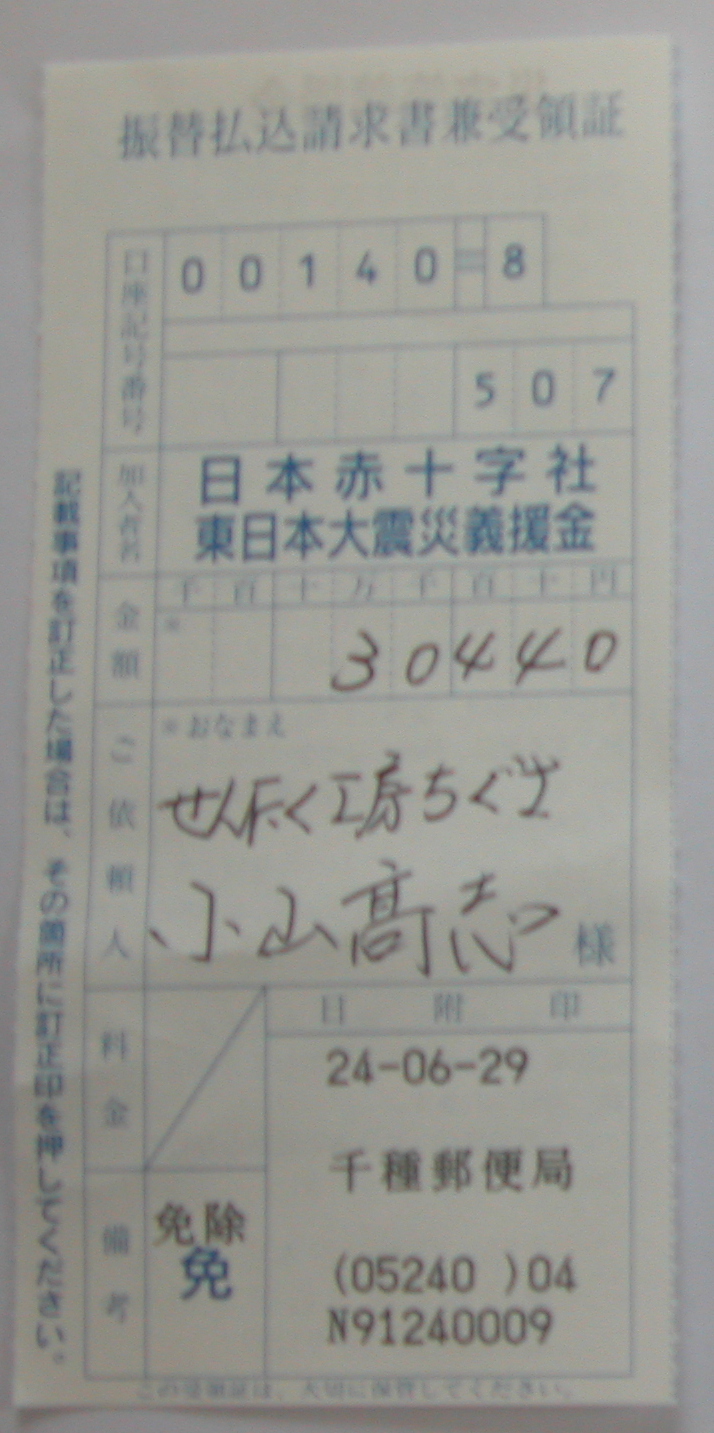 振替払込請求書兼受領証
口座記号番号
00140=8
507
加入者名
日本赤十字社
東日本大震災義援金
金額
千百十万千百十円
※
30440
ご依頼人
※おなまえ
せんたく工房ちぐさ
小山高志 様
料金
日附印
24-06-29
千種郵便局
備考
免除
免
(05240 )04
N91240009
記載事項を訂正した場合は、その箇所に訂正印を押してください。
この受領証は、大切に保管してください。